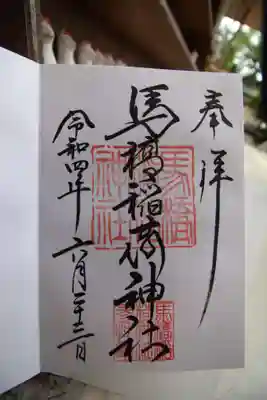 奉拝
馬橋稲荷神社
令和四年六月二十二日